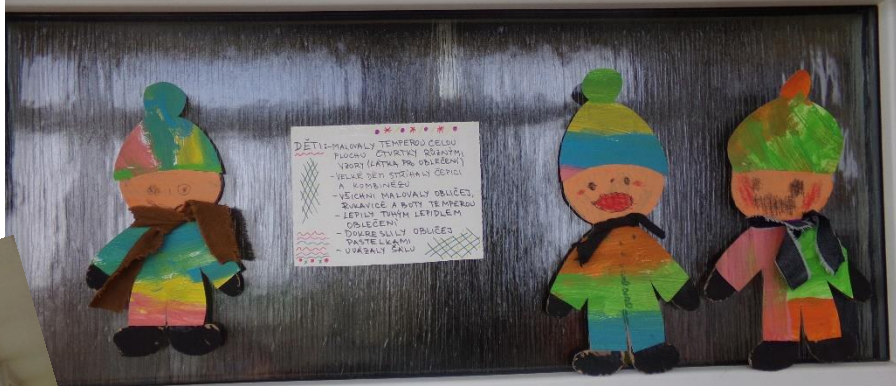 DĚTI:-MALOVALY TEMPEROU CELOU
PLOCHU ČTVRTKY RŮZNÝMI
VZORY (LÁTKA PRO OBLEČENÍ)
-VELKÉ DĚTI STŘÍHALY ČEPICI
A KOMBINÉZU
-VŠICHNI MALOVALY OBLIČEJ,
RUKAVICE A BOTY TEMPEROU
-LEPILY TUHÝM LEPIDLEM
OBLEČENÍ
-DOKRESLILY OBLIČEJ
PASTELKAMI
-UVÁZALY ŠÁLU